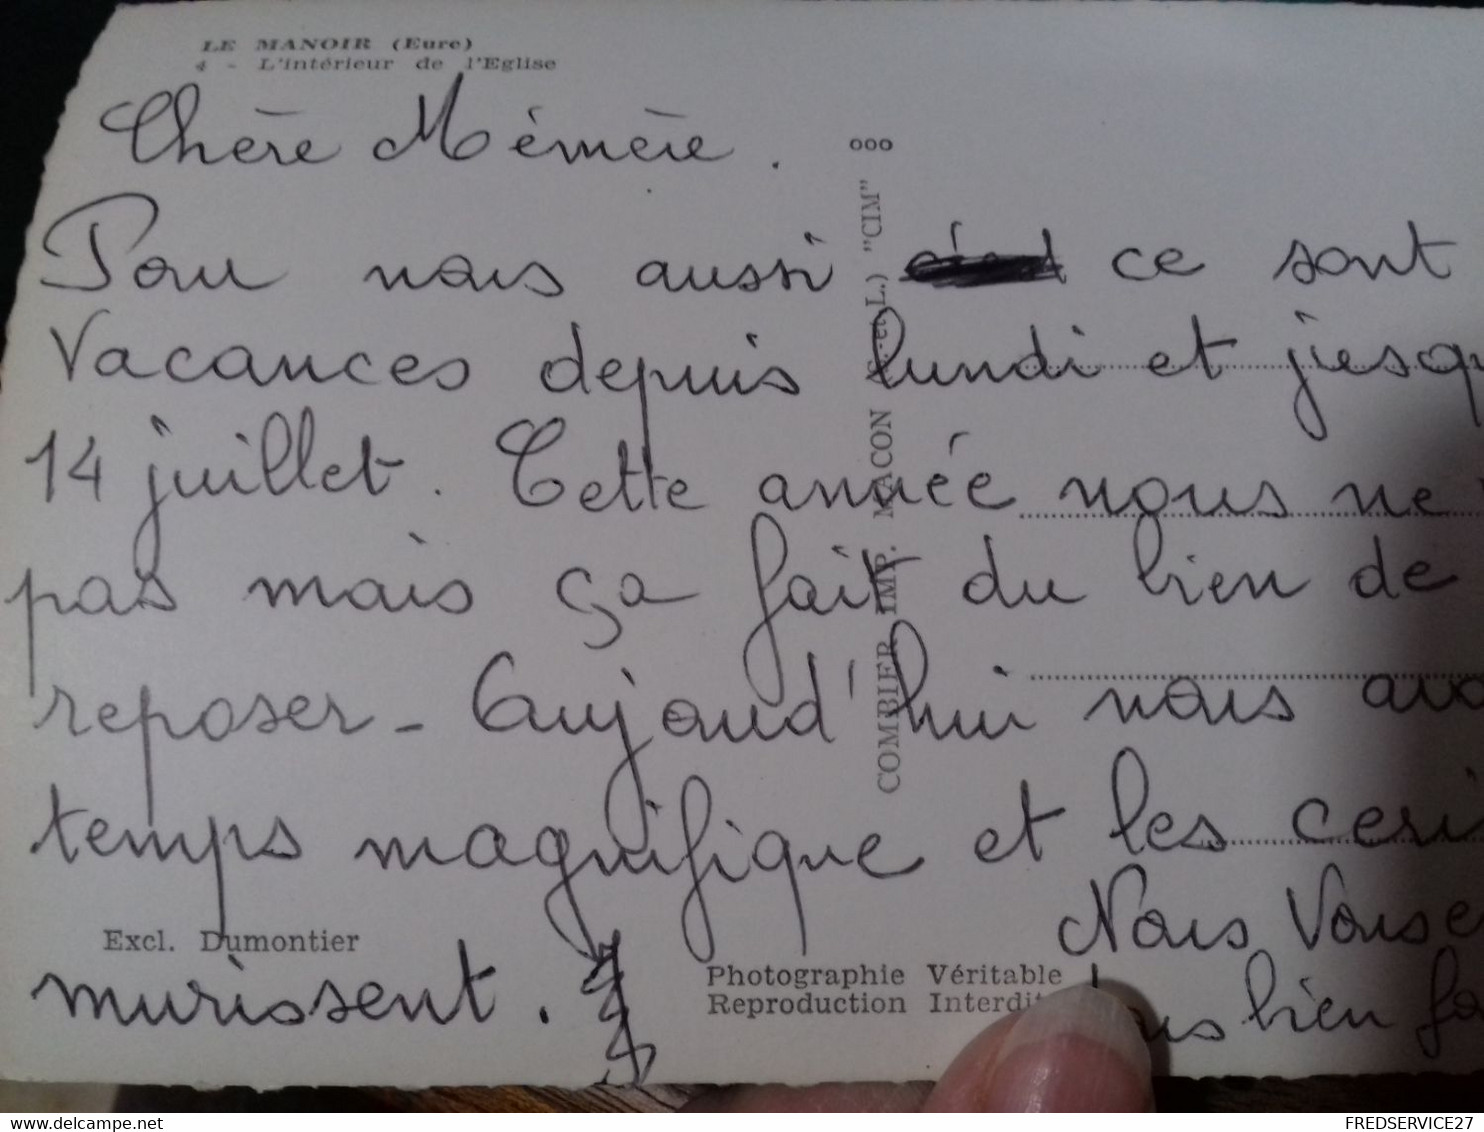 LE MANOIR (Eure)
4 - L'intérieur de l'Eglise
Chère Mémère.
Pour nous aussi ce sont
Vacances depuis lundi et
14 juillet. Cette année nous ne
pas mais ça fait du bien de
reposer - Aujourd'hui nous
temps magnifique et les
murissent.
Nous
bien
ooo
COMBIER IMP. MACON (S.-et-L.) "CIM"
Excl. Dumontier
Photographie Véritable
Reproduction
FREDSERVICE27